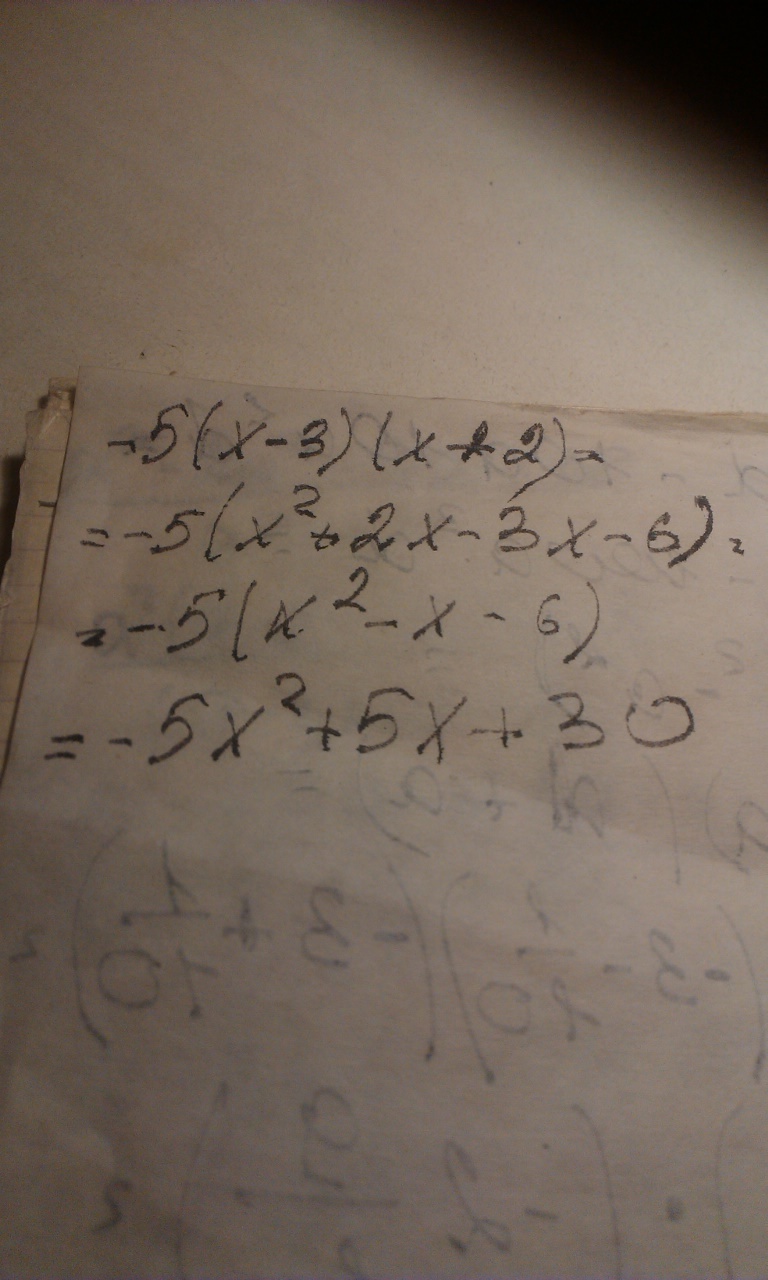 -5(x-3)(x+2)=
=-5(x²+2x-3x-6)=
=-5(x²-x-6)
=-5x²+5x+30